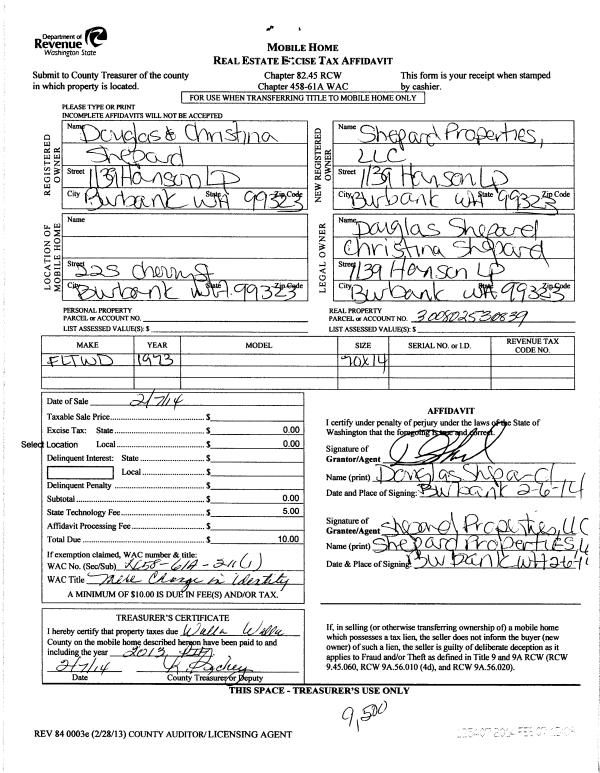 Department of
Revenue
Washington State
MOBILE HOME
REAL ESTATE EXCISE TAX AFFIDAVIT
Submit to County Treasurer of the county
in which property is located.
Chapter 82.45 RCW
Chapter 458-61A WAC
This form is your receipt when stamped
by cashier.
FOR USE WHEN TRANSFERRING TITLE TO MOBILE HOME ONLY
PLEASE TYPE OR PRINT
INCOMPLETE AFFIDAVITS WILL NOT BE ACCEPTED
REGISTERED OWNER
Name Douglas & Christina
Shepard
Street 1139 Hanson LP
City Burbank State WA Zip Code 99323
NEW REGISTERED OWNER
Name Shepard Properties,
LLC
Street 1139 Hanson LP
City Burbank State WA Zip Code 99323
LOCATION OF MOBILE HOME
Name
Street 225 Cherry St
City Burbank State WA. Zip Code 99323
LEGAL OWNER
Name Douglas Shepard
Christina Shepard
Street 1139 Hanson LP
City Burbank State WA. Zip Code 99323
PERSONAL PROPERTY
PARCEL or ACCOUNT NO.
LIST ASSESSED VALUE(S): $
REAL PROPERTY
PARCEL or ACCOUNT NO. 300802530839
LIST ASSESSED VALUE(S): $
MAKE YEAR MODEL SIZE SERIAL NO. or I.D. REVENUE TAX CODE NO.
FLTWD 1973 70x14
Date of Sale 2/7/14
Taxable Sale Price $
Excise Tax: State $ 0.00
Select Location Local $ 0.00
Delinquent Interest: State $
Local $
Delinquent Penalty $
Subtotal $ 0.00
State Technology Fee $ 5.00
Affidavit Processing Fee $
Total Due $ 10.00
If exemption claimed, WAC number & title:
WAC No. (Sec/Sub) 458-61A-211(1)
WAC Title Mere Change in Identity
A MINIMUM OF $10.00 IS DUE IN FEE(S) AND/OR TAX.
AFFIDAVIT
I certify under penalty of perjury under the laws of the State of
Washington that the foregoing is true and correct.
Signature of
Grantor/Agent
Name (print) Douglas Shepard
Date and Place of Signing: Burbank 2-6-14
Signature of
Grantee/Agent Shepard Properties, LLC
Name (print) Shepard Properties, LL
Date & Place of Signing Burbank WA 2-6-14
TREASURER'S CERTIFICATE
I hereby certify that property taxes due Walla Walla
County on the mobile home described hereon have been paid to and
including the year 2013
2/7/14
Date County Treasurer or Deputy
If, in selling (or otherwise transferring ownership of) a mobile home
which possesses a tax lien, the seller does not inform the buyer (new
owner) of such a lien, the seller is guilty of deliberate deception as it
applies to Fraud and/or Theft as defined in Title 9 and 9A RCW (RCW
9.45.060, RCW 9A.56.010 (4d), and RCW 9A.56.020).
THIS SPACE - TREASURER'S USE ONLY
9,500
REV 84 0003e (2/28/13) COUNTY AUDITOR/ LICENSING AGENT